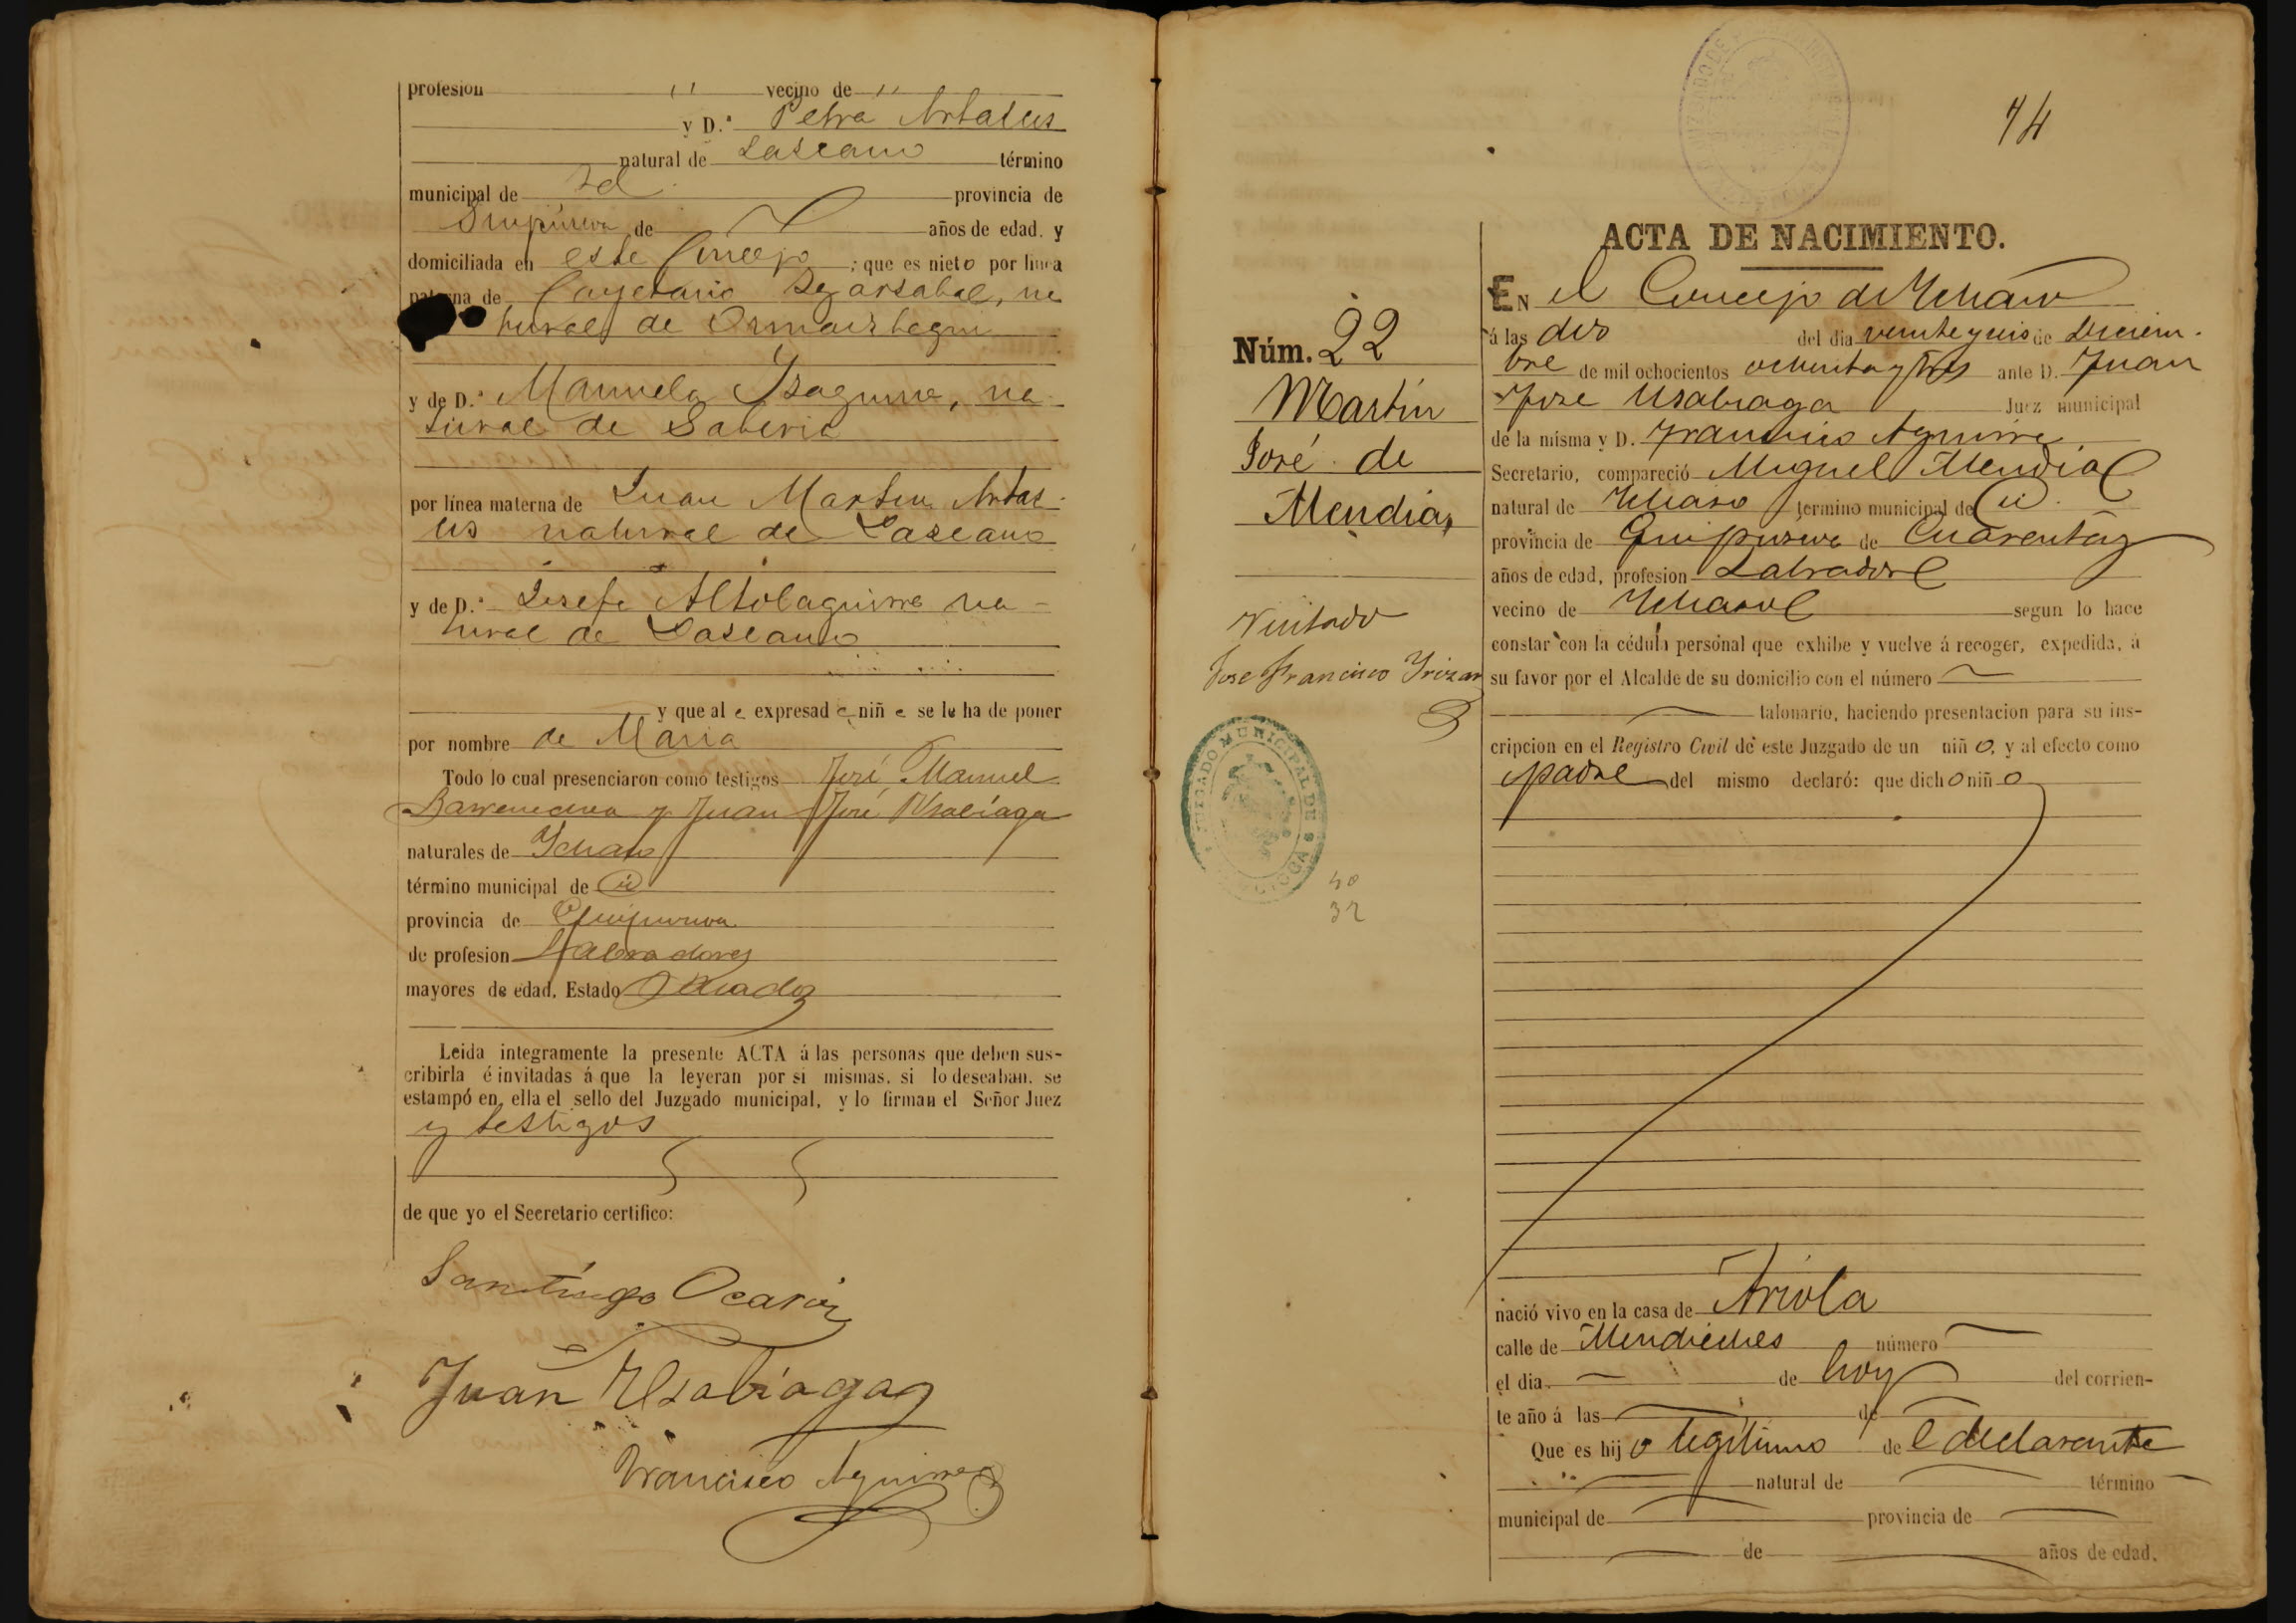 profesion " vecino de "
y D.ª Petra Artalus
natural de Lascano término
municipal de Id. provincia de
Guipúzcoa de años de edad. y
domiciliada en este Concejo ; que es nieto por línea
paterna de Cayetano na
tural de Ormaiztegui
y de D.ª Manuela Ysaguirre, na
tural de
por línea materna de Juan Martin Artal
us natural de Lascano
y de D.ª Josefa Altolaguirre na-
tural de Lascano
y que al a expresad a niñ a se le ha de poner
por nombre de Maria
Todo lo cual presenciaron como testigos José Manuel
Barrenechea y Juan José Usabiaga
naturales de Ychaso
término municipal de id
provincia de Guipuzcoa
de profesion Labradores
mayores de edad. Estado
Leida integramente la presente ACTA á las personas que deben sus-
cribirla é invitadas á que la leyeran por si mismas. si lo deseaban. se
estampó en ella el sello del Juzgado municipal, y lo firman el Señor Juez
y testigos
de que yo el Secretario certifico:
Santiago Ocariz
Juan Usabiaga
Francisco Aguirre
74
ACTA DE NACIMIENTO.
Núm. 22
Martin
José de
Mendia
Visitado
Jose Francisco Yrizar
JUZGADO MUNICIPAL DE
40
32
EN el Concejo de Ychaso
á las dos del dia veinte y seis de Diciem-
bre de mil ochocientos ochenta y tres ante D. Juan
Jose Usabiaga Juez municipal
de la misma y D. Francisco Aguirre
Secretario, compareció Miguel Mendia
natural de Ychaso termino municipal de id.
provincia de Guipuzcoa de Cuarenta
años de edad, profesion Labrador
vecino de Ychaso segun lo hace
constar con la cédula personal que exhibe y vuelve á recoger, expedida, á
su favor por el Alcalde de su domicilio con el número
talonario, haciendo presentacion para su ins-
cripcion en el Registro Civil de este Juzgado de un niñ o, y al efecto como
padre del mismo declaró: que dich o niñ o
nació vivo en la casa de Ariola
calle de número
el dia de hoy del corrien-
te año á las de
Que es hij o legitimo de l declarante
natural de término
municipal de provincia de
de años de edad.